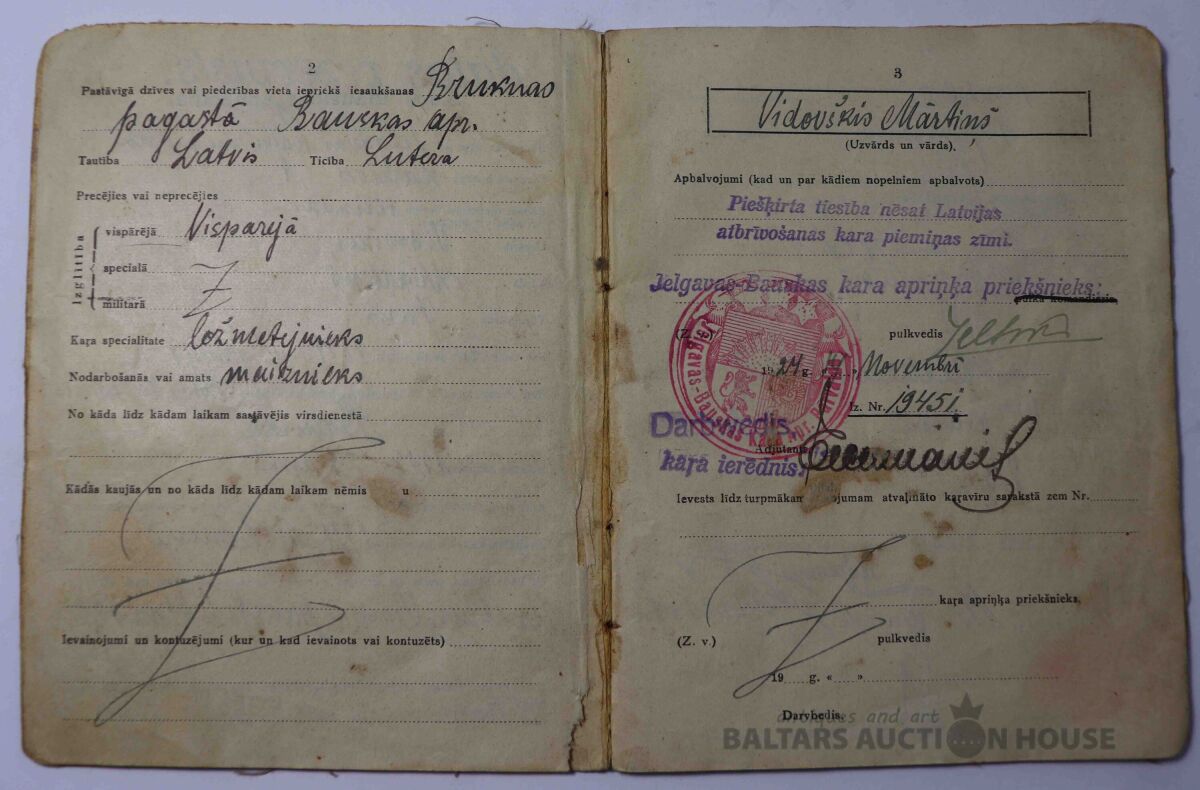 2
Pastāvīgā dzīves vai piederības vieta iepriekš iesaukšanas Bruknas
pagastā Bauskas apr.
Tautība Latvis Ticība Lutera
Precējies vai neprecējies
Izglītība
vispārējā Visparējā
speciālā
militārā
Kaŗa specialitate ložmetejnieks
Nodarbošanās vai amats maiznieks
No kāda līdz kādam laikam sastāvējis virsdienestā
Kādās kaujās un no kāda līdz kādam laikam ņēmis u
Ievainojumi un kontuzējumi (kur un kad ievainots vai kontuzēts)
3
Vidovškis Mārtiņš
(Uzvārds un vārds).
Apbalvojumi (kad un par kādiem nopelniem apbalvots)
Piešķirta tiesība nēsat Latvijas
atbrīvošanas kara piemiņas zīmi.
Jelgavas-Bauskas kara apriņķa priekšnieks:
pulkvedis
1924 g. Novembrī
Iz. Nr. 19451.
Jelgavas-Bauskas kara apr.
Darbvedis,
Adjutants
kaŗa ierēdnis:
Ievests līdz turpmākam atvaļināto kaŗavīru sarakstā zem Nr.
kaŗa apriņķa priekšnieks.
(Z. v.) pulkvedis
19 g. « »
Darvbedis.
antiques and art
BALTARS AUCTION HOUSE